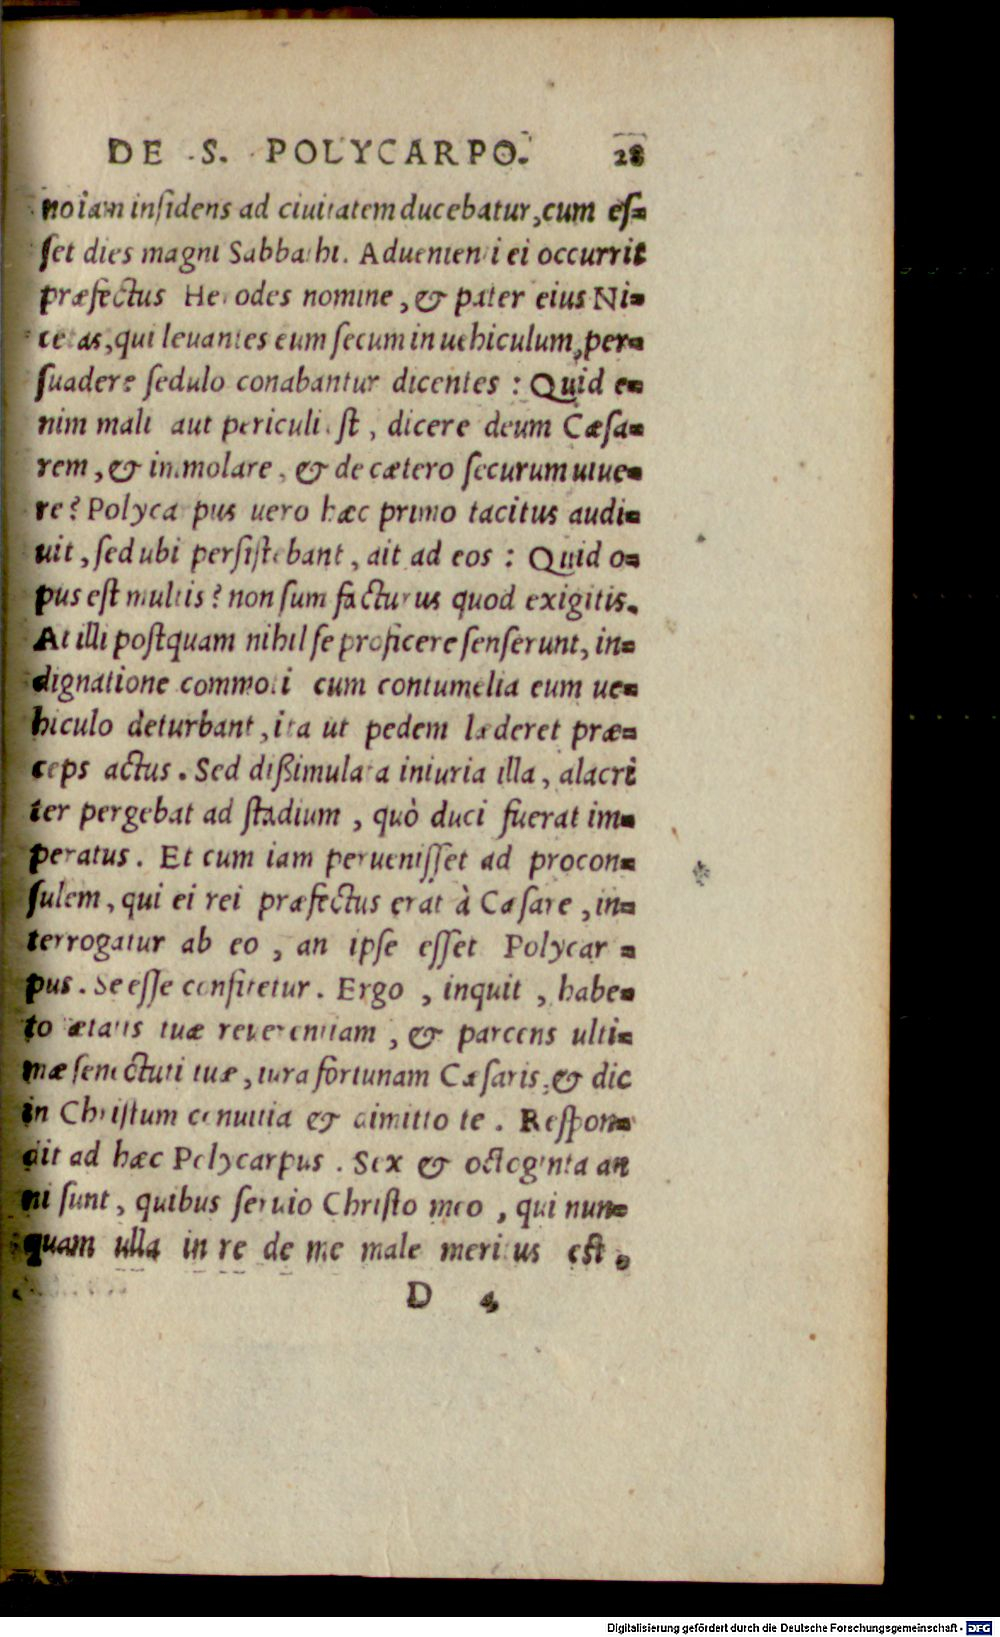 DE S. POLYCARPO. 28
noiam insidens ad ciuitatem ducebatur, cum es-
set dies magni Sabbathi. Aduenienti ei occurrit
præfectus Herodes nomine, & pater eius Ni-
cetas, qui leuantes eum secum in uehiculum, per-
suadere sedulo conabantur dicentes: Quid e-
nim mali aut periculi est, dicere deum Cæsa-
rem, & immolare, & de cætero securum uiue-
re? Polycarpus uero hæc primo tacitus audi-
uit, sed ubi persistebant, ait ad eos: Quid o-
pus est multis? non sum facturus quod exigitis.
At illi postquam nihil se proficere senserunt, in-
dignatione commoti cum contumelia eum ue-
hiculo deturbant, ita ut pedem læderet præ-
ceps actus. Sed dißimulata iniuria illa, alacri
ter pergebat ad stadium, quò duci fuerat im-
peratus. Et cum iam peruenisset ad procon-
sulem, qui ei rei præfectus erat à Cæsare, in-
terrogatur ab eo, an ipse esset Polycar-
pus. Se esse confitetur. Ergo, inquit, habe-
to ætatis tuæ reuerentiam, & parcens ulti-
mæ senectuti tuæ, iura fortunam Cæsaris, & dic
in Christum conuitia & dimitto te. Respon-
dit ad hæc Polycarpus. Sex & octoginta an
ni sunt, quibus seruio Christo meo, qui nun-
quam ulla in re de me male meritus est.
D 4
Digitalisierung gefördert durch die Deutsche Forschungsgemeinschaft - DFG